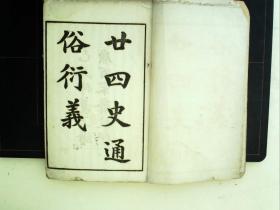 廿四史通
俗衍義